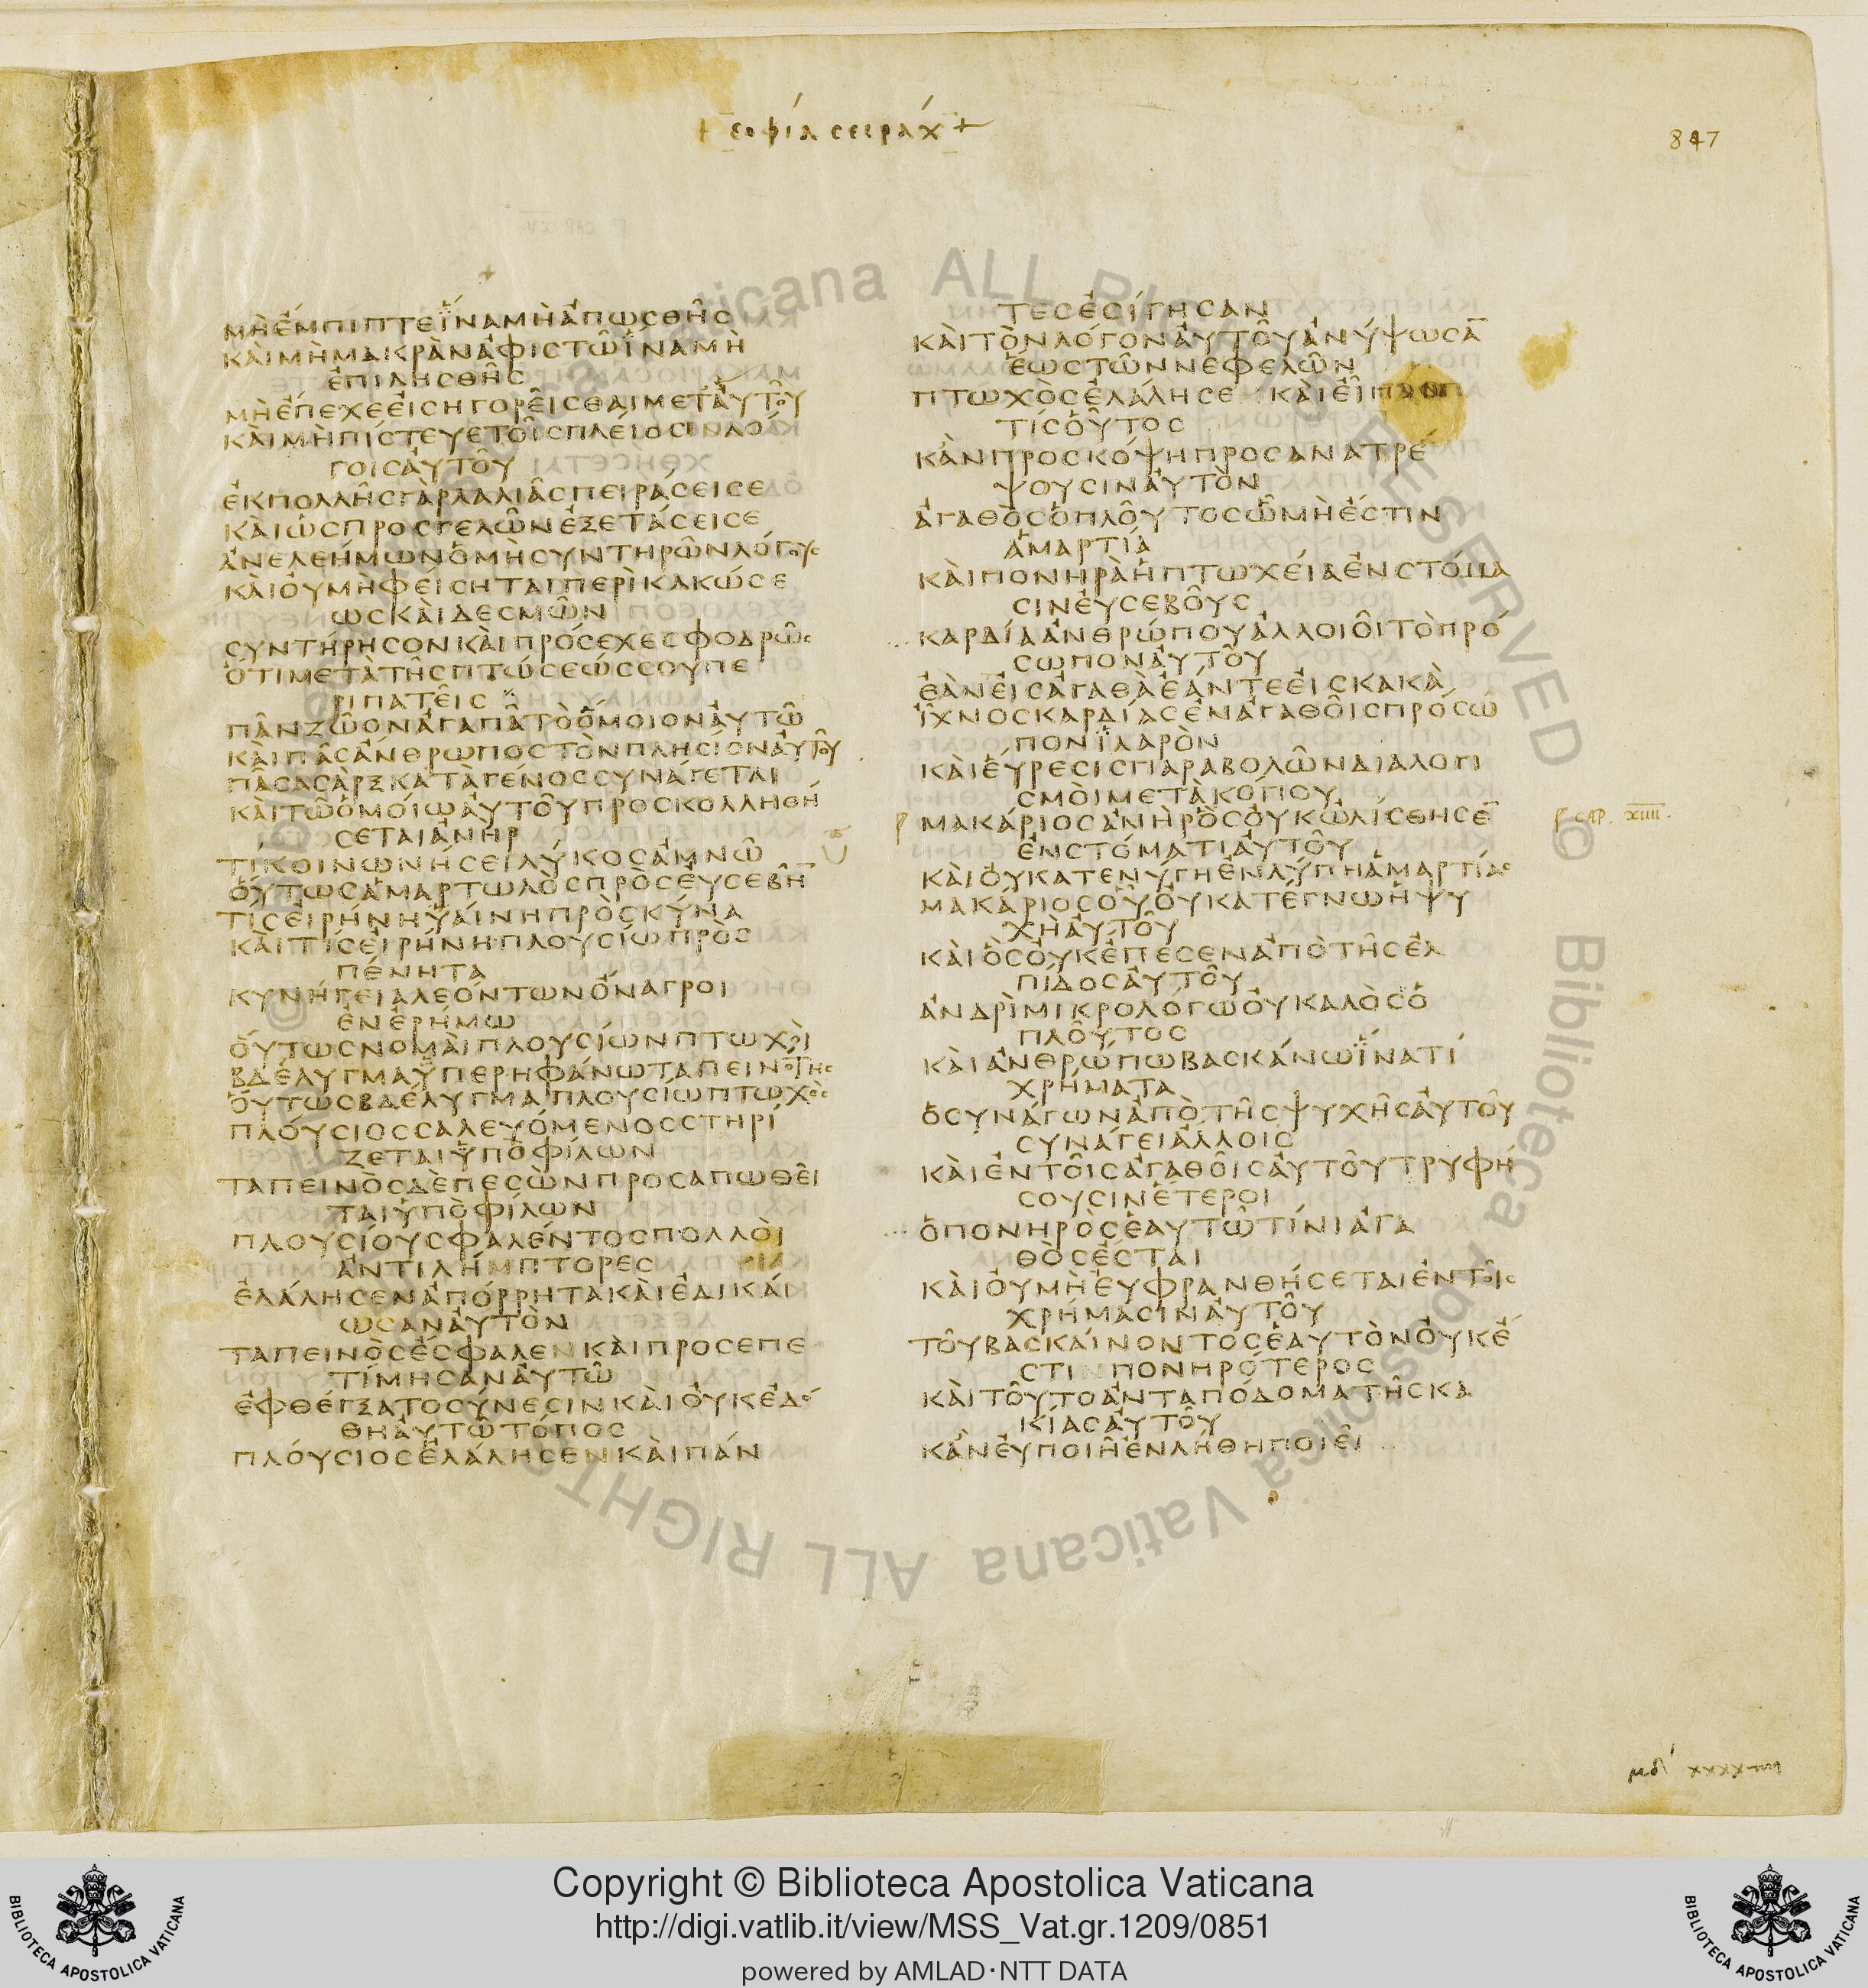 + σοφία σειραχ +
847
ΜῊἘΜΠΙΠΤΕἽΝΑΜῊἈΠΩΣΘΗ͂Σ
ΚΑῚΜῊΜΑΚΡᾺΝἈΦΙΣΤΩ͂ἽΝΑΜῊ
ἘΠΙΛΗΣΘΗ͂Σ
ΜῊἘΠΕΧΕΕἸΣΗΓΟΡΕΙ͂ΣΘΑΙΜΕΤἈΥΤΟΥ͂
ΚΑῚΜῊΠΊΣΤΕΥΕΤΟΙ͂ΣΠΛΕΊΟΣΙΝΛΌ
ΓΟΙΣἈΥΤΟΥ͂
ἘΚΠΟΛΛΗ͂ΣΓᾺΡΛΑΛΙΑ͂ΣΠΕΙΡΆΣΕΙΣΕ
ΚΑΙὩΣΠΡΟΣΓΕΛΩ͂ΝἘΞΕΤΆΣΕΙΣΕ
ἈΝΕΛΕΉΜΩΝὉΜῊΣΥΝΤΗΡΩ͂ΝΛΌΓΟΥΣ
ΚΑῚΟΥΜῊΦΕΊΣΗΤΑΙΠΕΡῚΚΑΚΏΣΕ
ΩΣΚΑῚΔΕΣΜΩ͂Ν
ΣΥΝΤΉΡΗΣΟΝΚΑῚΠΡΌΣΕΧΕΣΦΟΔΡΩ͂Σ
ὍΤΙΜΕΤᾺΤΗ͂ΣΠΤΏΣΕΏΣΣΟΥΠΕ
ΡΙΠΑΤΕΙ͂Σ
ΠΑ͂ΝΖΩ͂ΟΝἈΓΑΠΑ͂ΤῸὍΜΟΙΟΝἈΥΤΩ͂
ΚΑῚΠΑ͂ΣἌΝΘΡΩΠΟΣΤῸΝΠΛΗΣΊΟΝἈΥΤΟΥ͂
ΠΑ͂ΣΑΣᾺΡΞΚΑΤᾺΓΈΝΟΣΣΥΝΆΓΕΤΑΙ
ΚΑῚΤΩ͂ὉΜΟΊΩἈΥΤΟΥ͂ΠΡΟΣΚΟΛΛΗΘΉ
ΣΕΤΑΙἈΝΗΡ
ΤΊΚΟΙΝΩΝΉΣΕΙΛΎΚΟΣἈΜΝΩ͂
ὍΥΤΩΣἉΜΑΡΤΩΛῸΣΠΡῸΣἘΥΣΕΒΗ͂
ΤΊΣΕἸΡΉΝΗὙΑΊΝΗΠΡῸΣΚΎΝΑ
ΚΑῚΤΊΣΕἸΡΉΝΗΠΛΟΥΣΊΩΠΡῸΣ
ΠΈΝΗΤΑ
ΚΥΝΉΓΕΙΑΛΕΌΝΤΩΝὌΝΑΓΡΟΙ
ἘΝἘΡΉΜΩ
ὍΥΤΩΣΝΟΜΑῚΠΛΟΥΣΊΩΝΠΤΩΧΟῚ
ΒΔΈΛΥΓΜΑὙΠΕΡΗΦΆΝΩΤΑΠΕΙΝΌΤΗΣ
ὍΥΤΩΣΒΔΈΛΥΓΜΑΠΛΟΥΣΊΩΠΤΩΧῸΣ
ΠΛΌΥΣΙΟΣΣΑΛΕΥΌΜΕΝΟΣΣΤΗΡΊ
ΖΕΤΑΙὙΠῸΦΊΛΩΝ
ΤΑΠΕΙΝῸΣΔῈΠΕΣῺΝΠΡΟΣΑΠΩΘΕΙ͂
ΤΑΙὙΠῸΦΊΛΩΝ
ΠΛΟΥΣΊΟΥΣΦΑΛΈΝΤΟΣΠΟΛΛΟῚ
ἈΝΤΙΛΉΜΠΤΟΡΕΣ
ἘΛΆΛΗΣΕΝἈΠΌΡΡΗΤΑΚΑῚἘΔΙΚΆΙ
ΩΣΑΝἈΥΤῸΝ
ΤΑΠΕΙΝῸΣἜΣΦΑΛΕΝΚΑῚΠΡΟΣΕΠΕ
ΤΊΜΗΣΑΝἈΥΤΩ͂
ἘΦΘΈΓΞΑΤΟΣΎΝΕΣΙΝΚΑῚΟΥΚἘΔΌ
ΘΗἈΥΤΩ͂ΤΌΠΟΣ
ΠΛΌΥΣΙΟΣἘΛΆΛΗΣΕΝΚΑῚΠΆΝ
ΤΕΣἘΣΊΓΗΣΑΝ
ΚΑῚΤῸΝΛΌΓΟΝἈΥΤΟΥ͂ἈΝΎΨΩΣᾹ
ἝΩΣΤΩ͂ΝΝΕΦΕΛΩ͂Ν
ΠΤΩΧῸΣἘΛΆΛΗΣΕ ΚΑῚΕἾΠΑΝ
ΤΊΣΟὟΤΟΣ
ΚἈΝΠΡΟΣΚΌΨΗΠΡΟΣΑΝΑΤΡΈ
ΨΟΥΣΙΝἈΥΤῸΝ
ἈΓΑΘῸΣὉΠΛΟΥ͂ΤΟΣΩ͂ΜῊἘΣΤΙΝ
ἉΜΑΡΤΊΑ
ΚΑῚΠΟΝΗΡᾺἩΠΤΩΧΕΊΑἘΝΣΤΌΜΑ
ΣΙΝἘΥΣΕΒΟΥ͂Σ
ΚΑΡΔΊΑἈΝΘΡΏΠΟΥἈΛΛΟΙΟΙ͂ΤῸΠΡΌ
ΣΩΠΟΝἈΥΤΟΥ͂
ἘᾺΝΕἸΣἈΓΑΘᾺἘΆΝΤΕΕἸΣΚΑΚᾺ
ἼΧΝΟΣΚΑΡΔΊΑΣἘΝἈΓΑΘΟΙ͂ΣΠΡΌΣΩ
ΠΟΝἹΛΑΡῸΝ
ΚΑῚἙΎΡΕΣΙΣΠΑΡΑΒΟΛΩ͂ΝΔΙΑΛΟΓΙ
ΣΜΟῚΜΕΤᾺΚΌΠΟΥ
ΜΑΚΆΡΙΟΣἈΝῊΡὋΣΟΥΚὨΛΊΣΘΗΣΕ̄
ἘΝΣΤΌΜΑΤΙἈΥΤΟΥ͂
CAP. XIIII.
ΚΑῚΟΥΚΑΤΕΝΎΓΗἘΝΛΎΠΗἉΜΑΡΤΊΑΣ
ΜΑΚΆΡΙΟΣΟὟΟΥΚΑΤΈΓΝΩἩΨΥ
ΧῊἈΥΤΟΥ͂
ΚΑῚὋΣΟΥΚἜΠΕΣΕΝἈΠῸΤΗ͂ΣἘΛ
ΠΊΔΟΣἈΥΤΟΥ͂
ἈΝΔΡῚΜΙΚΡΟΛΌΓΩΟΥΚΑΛῸΣὉ
ΠΛΟΥ͂ΤΟΣ
ΚΑῚἈΝΘΡΏΠΩΒΑΣΚΆΝΩἽΝΑΤΊ
ΧΡΉΜΑΤΑ
ὉΣΥΝΆΓΩΝἈΠῸΤΗ͂ΣΨΥΧΗ͂ΣἈΥΤΟΥ͂
ΣΥΝΆΓΕΙἌΛΛΟΙΣ
ΚΑῚἘΝΤΟΙ͂ΣἈΓΑΘΟΙ͂ΣἈΥΤΟΥ͂ΤΡΥΦΉ
ΣΟΥΣΙΝἝΤΕΡΟΙ
ὉΠΟΝΗΡῸΣἙΑΥΤΩ͂ΤΊΝΙἈΓΑ
ΘῸΣἜΣΤΑΙ
ΚΑῚΟΥΜῊἘΥΦΡΑΝΘΉΣΕΤΑΙἘΝΤΟΙ͂Σ
ΧΡΉΜΑΣΙΝἈΥΤΟΥ͂
ΤΟΥ͂ΒΑΣΚΑΊΝΟΝΤΟΣἙΑΥΤῸΝΟΥΚἜ
ΣΤΙΝΠΟΝΗΡΌΤΕΡΟΣ
ΚΑῚΤΟΥ͂ΤΟἈΝΤΑΠΌΔΟΜΑΤΗ͂ΣΚΑ
ΚΊΑΣἈΥΤΟΥ͂
ΚἈΝἘΥΠΟΙΗ͂ἘΝΛΉΘΗΠΟΙΕΙ͂
Copyright © Biblioteca Apostolica Vaticana
http://digi.vatlib.it/view/MSS_Vat.gr.1209/0851
powered by AMLAD·NTT DATA
BIBLIOTECA APOSTOLICA VATICANA
BIBLIOTECA APOSTOLICA VATICANA